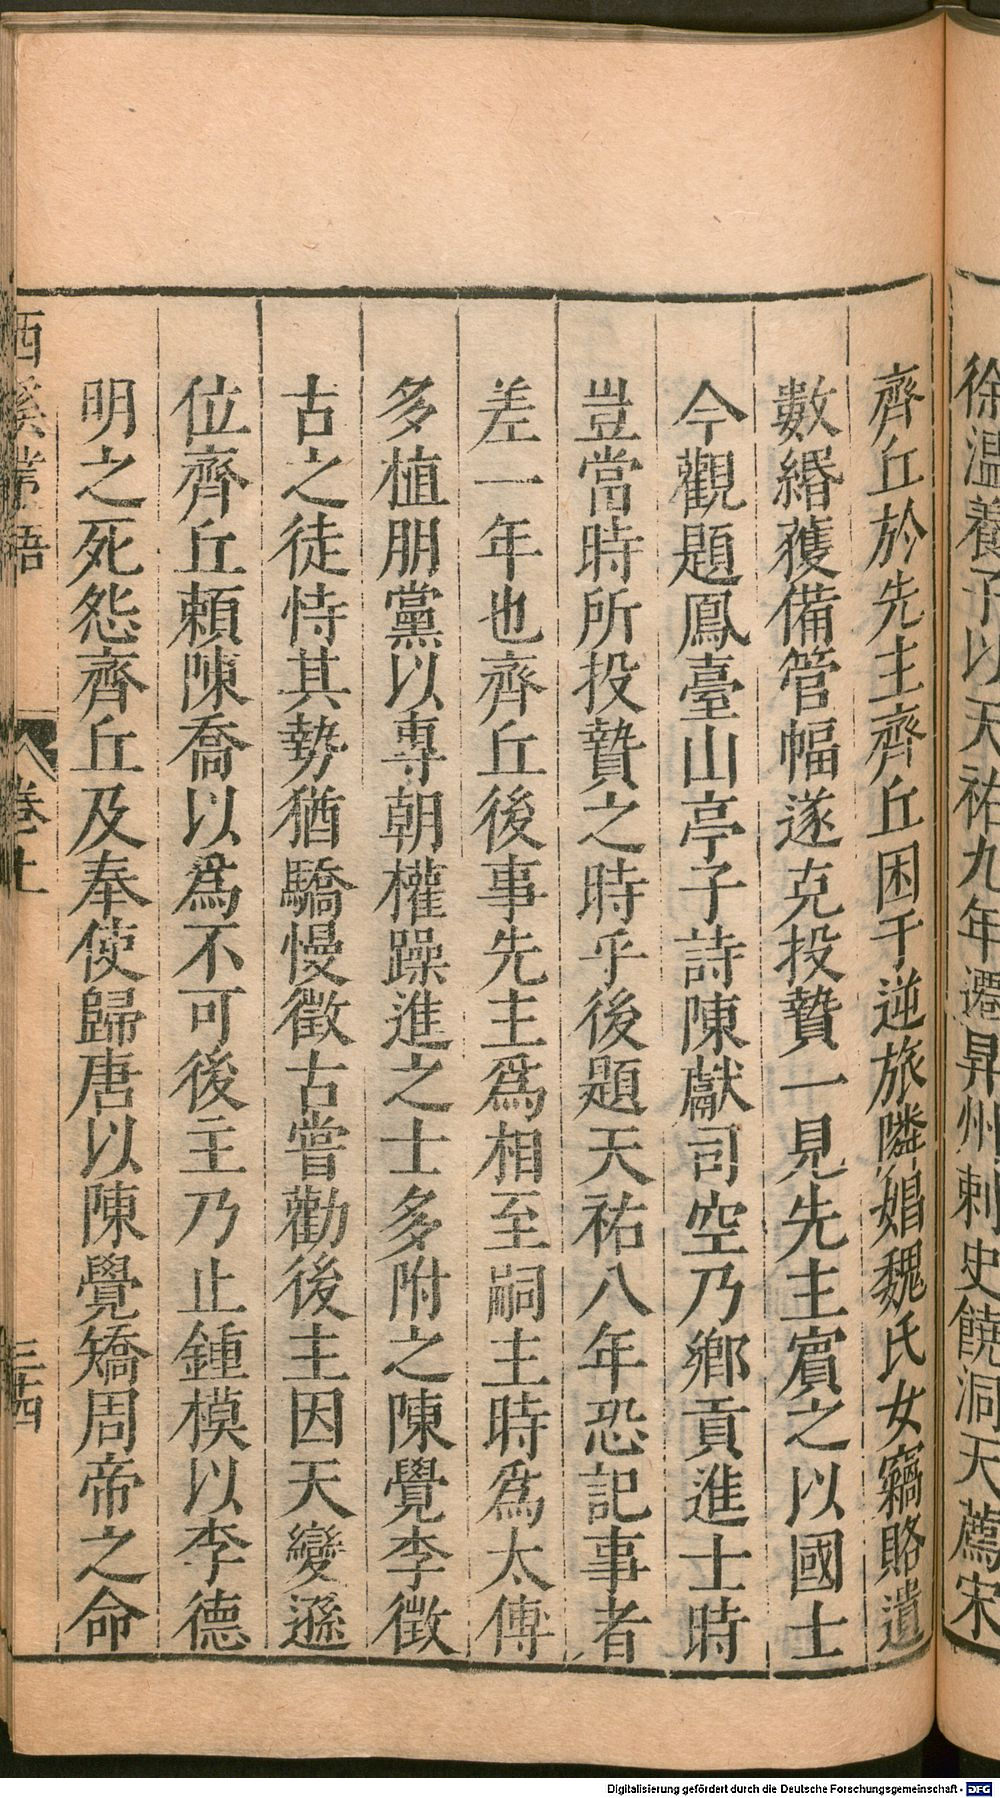 徐溫養子以天祐九年遷昇州刺史饒洞天薦宋
齊丘於先主齊丘困于逆旅隣娼魏氏女竊賂遺
數緡獲備管幅遂克投贄一見先主賓之以國士
今觀題鳳臺山亭子詩陳獻司空乃鄉貢進士時
豈當時所投贄之時乎後題天祐八年恐記事者
差一年也齊丘後事先主爲相至嗣主時爲太傅
多植朋黨以專朝權躁進之士多附之陳覺李徵
古之徒恃其勢猶驕慢徵古嘗勸後主因天變遜
位齊丘賴陳喬以爲不可後主乃止鍾模以李德
明之死怨齊丘及奉使歸唐以陳覺矯周帝之命
西溪叢語
卷上
三四
Digitalisierung gefördert durch die Deutsche Forschungsgemeinschaft - DFG